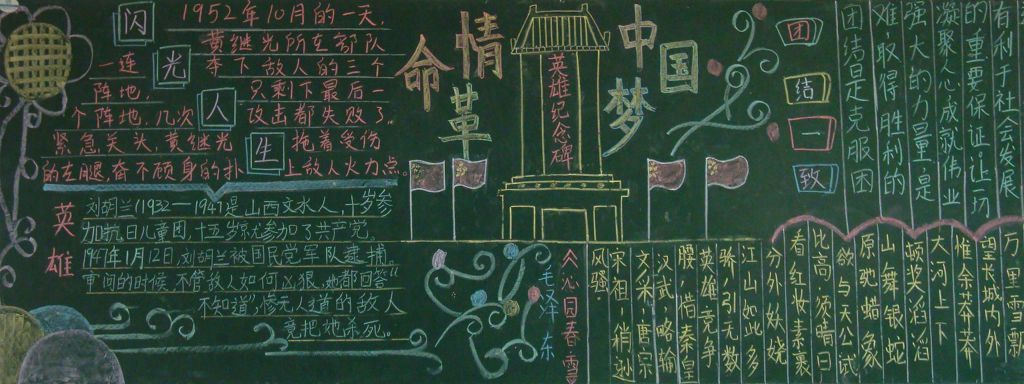 闪光人生
1952年10月的一天,
黄继光所在部队
一连夺下敌人的三个
阵地,只剩下最后一
个阵地,几次攻击都失败了.
紧急关头,黄继光拖着受伤
的左腿,奋不顾身的扑上敌人火力点。
英雄
刘胡兰(1932—1947)是山西文水人,十岁参
加抗日儿童团,十五岁就参加了共产党。
1947年1月12日,刘胡兰被国民党军队逮捕,
审问的时候,不管敌人如何凶狠,她都回答“
不知道”,惨无人道的敌人
竟把她杀死。
革命情
英雄纪念碑
中国梦
团结一致
团结是克服困
难,取得胜利的
强大的力量是
凝聚人心成就伟业
的重要保证;让一切
有利于社会发展
沁园春·雪
毛泽东
万里雪飘
望长城内外
惟余莽莽
大河上下
顿奖滔滔
山舞银蛇
原驰蜡象
欲与天公试
比高.须晴日
看红妆素裹
分外妖娆
江山如此多
骄,引无数
英雄竞争
腰,惜秦皇
汉武,略输
文采,唐宗
宋祖,稍逊
风骚.